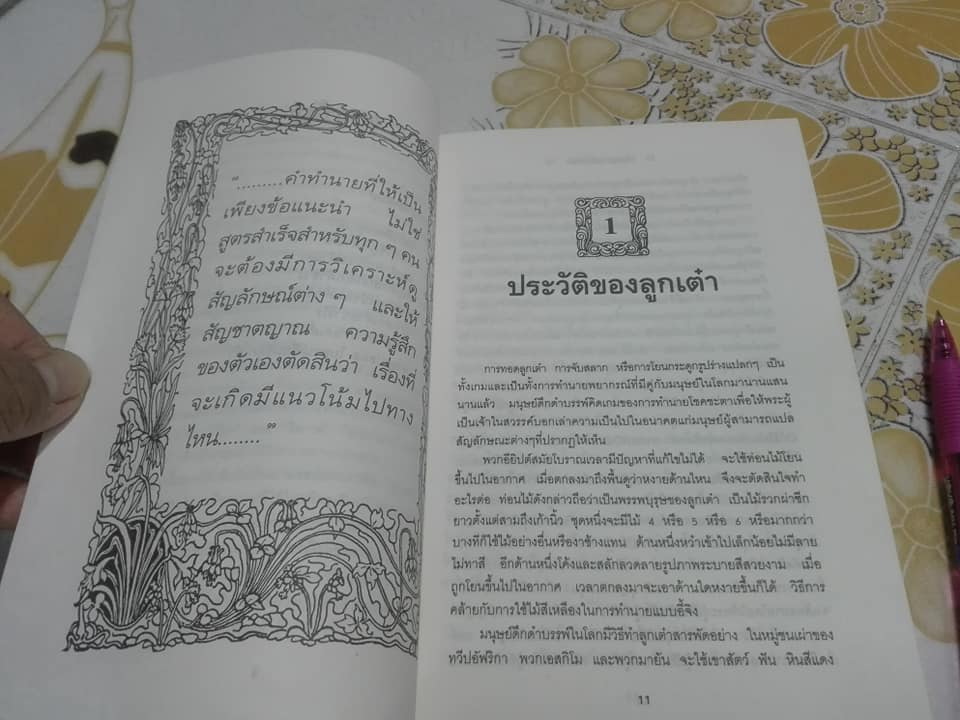 "........คำทำนายที่ให้เป็น
เพียงข้อแนะนำ ไม่ใช่
สูตรสำเร็จสำหรับทุก ๆ คน
จะต้องมีการวิเคราะห์ดู
สัญลักษณ์ต่าง ๆ และให้
สัญชาตญาณ ความรู้สึก
ของตัวเองตัดสินว่า เรื่องที่
จะเกิดมีแนวโน้มไปทาง
ไหน........"
1
ประวัติของลูกเต๋า
การทอดลูกเต๋า การจับสลาก หรือการโยนกระดูกรูปร่างแปลกๆ เป็น
ทั้งเกมและเป็นทั้งการทำนายพยากรณ์ที่มีคู่กับมนุษย์ในโลกมานานแสน
นานแล้ว มนุษย์ดึกดำบรรพ์คิดเกมของการทำนายโชคชะตาเพื่อให้พระผู้
เป็นเจ้าในสวรรค์บอกเล่าความเป็นไปในอนาคตแก่มนุษย์ผู้สามารถแปล
สัญลักษณะต่างๆที่ปรากฏให้เห็น
พวกอียิปต์สมัยโบราณเวลามีปัญหาที่แก้ไขไม่ได้ จะใช้ท่อนไม้โยน
ขึ้นไปในอากาศ เมื่อตกลงมาถึงพื้นดูว่าหงายด้านไหน จึงจะตัดสินใจทำ
อะไรต่อ ท่อนไม้ดังกล่าวถือว่าเป็นพรรพบุรุษของลูกเต๋า เป็นไม้รวกผ่าซีก
ยาวตั้งแต่สามถึงเก้านิ้ว ชุดหนึ่งจะมีไม้ 4 หรือ 5 หรือ 6 หรือมากกว่า
บางทีก็ใช้ไม้อย่างอื่นหรืองาช้างแทน ด้านหนึ่งหว่ำเข้าไปเล็กน้อยไม่มีลาย
ไม่ทาสี อีกด้านหนึ่งโค้งและสลักลวดลายรูปภาพระบายสีสวยงาม เมื่อ
ถูกโยนขึ้นไปในอากาศ เวลาตกลงมาจะเอาด้านใดหงายขึ้นก็ได้ วิธีการ
คล้ายกับการใช้ไม้สีเหลืองในการทำนายแบบอี้จิง
มนุษย์ดึกดำบรรพ์ในโลกมีวิธีทำลูกเต๋าสารพัดอย่าง ในหมู่ชนเผ่าของ
ทวีปอัฟริกา พวกเอสกิโม และพวกมายัน จะใช้เขาสัตว์ ฟัน หินสีแดง
11